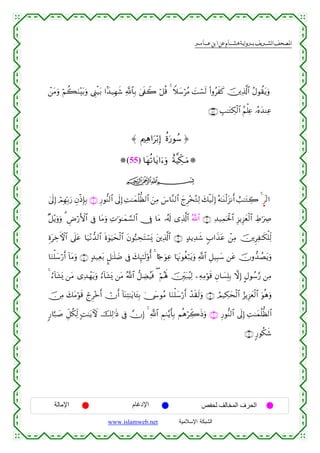 المصحف الشريف برواية هشام عن ابن عامر
وَيَقُولُ ٱلَّذِينَ كَفَرُوا۟ لَسْتَ مُرْسَلًا ۚ قُلْ كَفَىٰ بِٱللَّهِ شَهِيدًۢا بَيْنِى وَبَيْنَكُمْ وَمَنْ
عِندَهُۥ عِلْمُ ٱلْكِتَٰبِ
﴿ سُورَةُ إِبْرَاهِيمَ ﴾
مَكِّيَّةٌ وَءَايَاتُهَا (55)
بِسْمِ ٱللَّهِ ٱلرَّحْمَٰنِ ٱلرَّحِيمِ
الٓر ۚ كِتَٰبٌ أَنزَلْنَٰهُ إِلَيْكَ لِتُخْرِجَ ٱلنَّاسَ مِنَ ٱلظُّلُمَٰتِ إِلَى ٱلنُّورِ بِإِذْنِ رَبِّهِمْ إِلَىٰ
صِرَٰطِ ٱلْعَزِيزِ ٱلْحَمِيدِ ٱللَّهُ ٱلَّذِى لَهُۥ مَا فِى ٱلسَّمَٰوَٰتِ وَمَا فِى ٱلْأَرْضِ ۗ وَوَيْلٌ
لِّلْكَٰفِرِينَ مِنْ عَذَابٍ شَدِيدٍ ٱلَّذِينَ يَسْتَحِبُّونَ ٱلْحَيَوٰةَ ٱلدُّنْيَا عَلَى ٱلْءَاخِرَةِ
وَيَصُدُّونَ عَن سَبِيلِ ٱللَّهِ وَيَبْغُونَهَا عِوَجًا ۚ أُو۟لَٰٓئِكَ فِى ضَلَٰلٍۭ بَعِيدٍ وَمَآ أَرْسَلْنَا
مِن رَّسُولٍ إِلَّا بِلِسَانِ قَوْمِهِۦ لِيُبَيِّنَ لَهُمْ ۖ فَيُضِلُّ ٱللَّهُ مَن يَشَآءُ وَيَهْدِى مَن يَشَآءُ ۚ
وَهُوَ ٱلْعَزِيزُ ٱلْحَكِيمُ وَلَقَدْ أَرْسَلْنَا مُوسَىٰ بِـَٔايَٰتِنَآ أَنْ أَخْرِجْ قَوْمَكَ مِنَ
ٱلظُّلُمَٰتِ إِلَى ٱلنُّورِ وَذَكِّرْهُم بِأَيَّىٰمِ ٱللَّهِ ۚ إِنَّ فِى ذَٰلِكَ لَءَايَٰتٍ لِّكُلِّ صَبَّارٍ
شَكُورٍ
الحرف المخالف لحفص الإدغام الإمالة
الشبكة الإسلامية www.islamweb.net